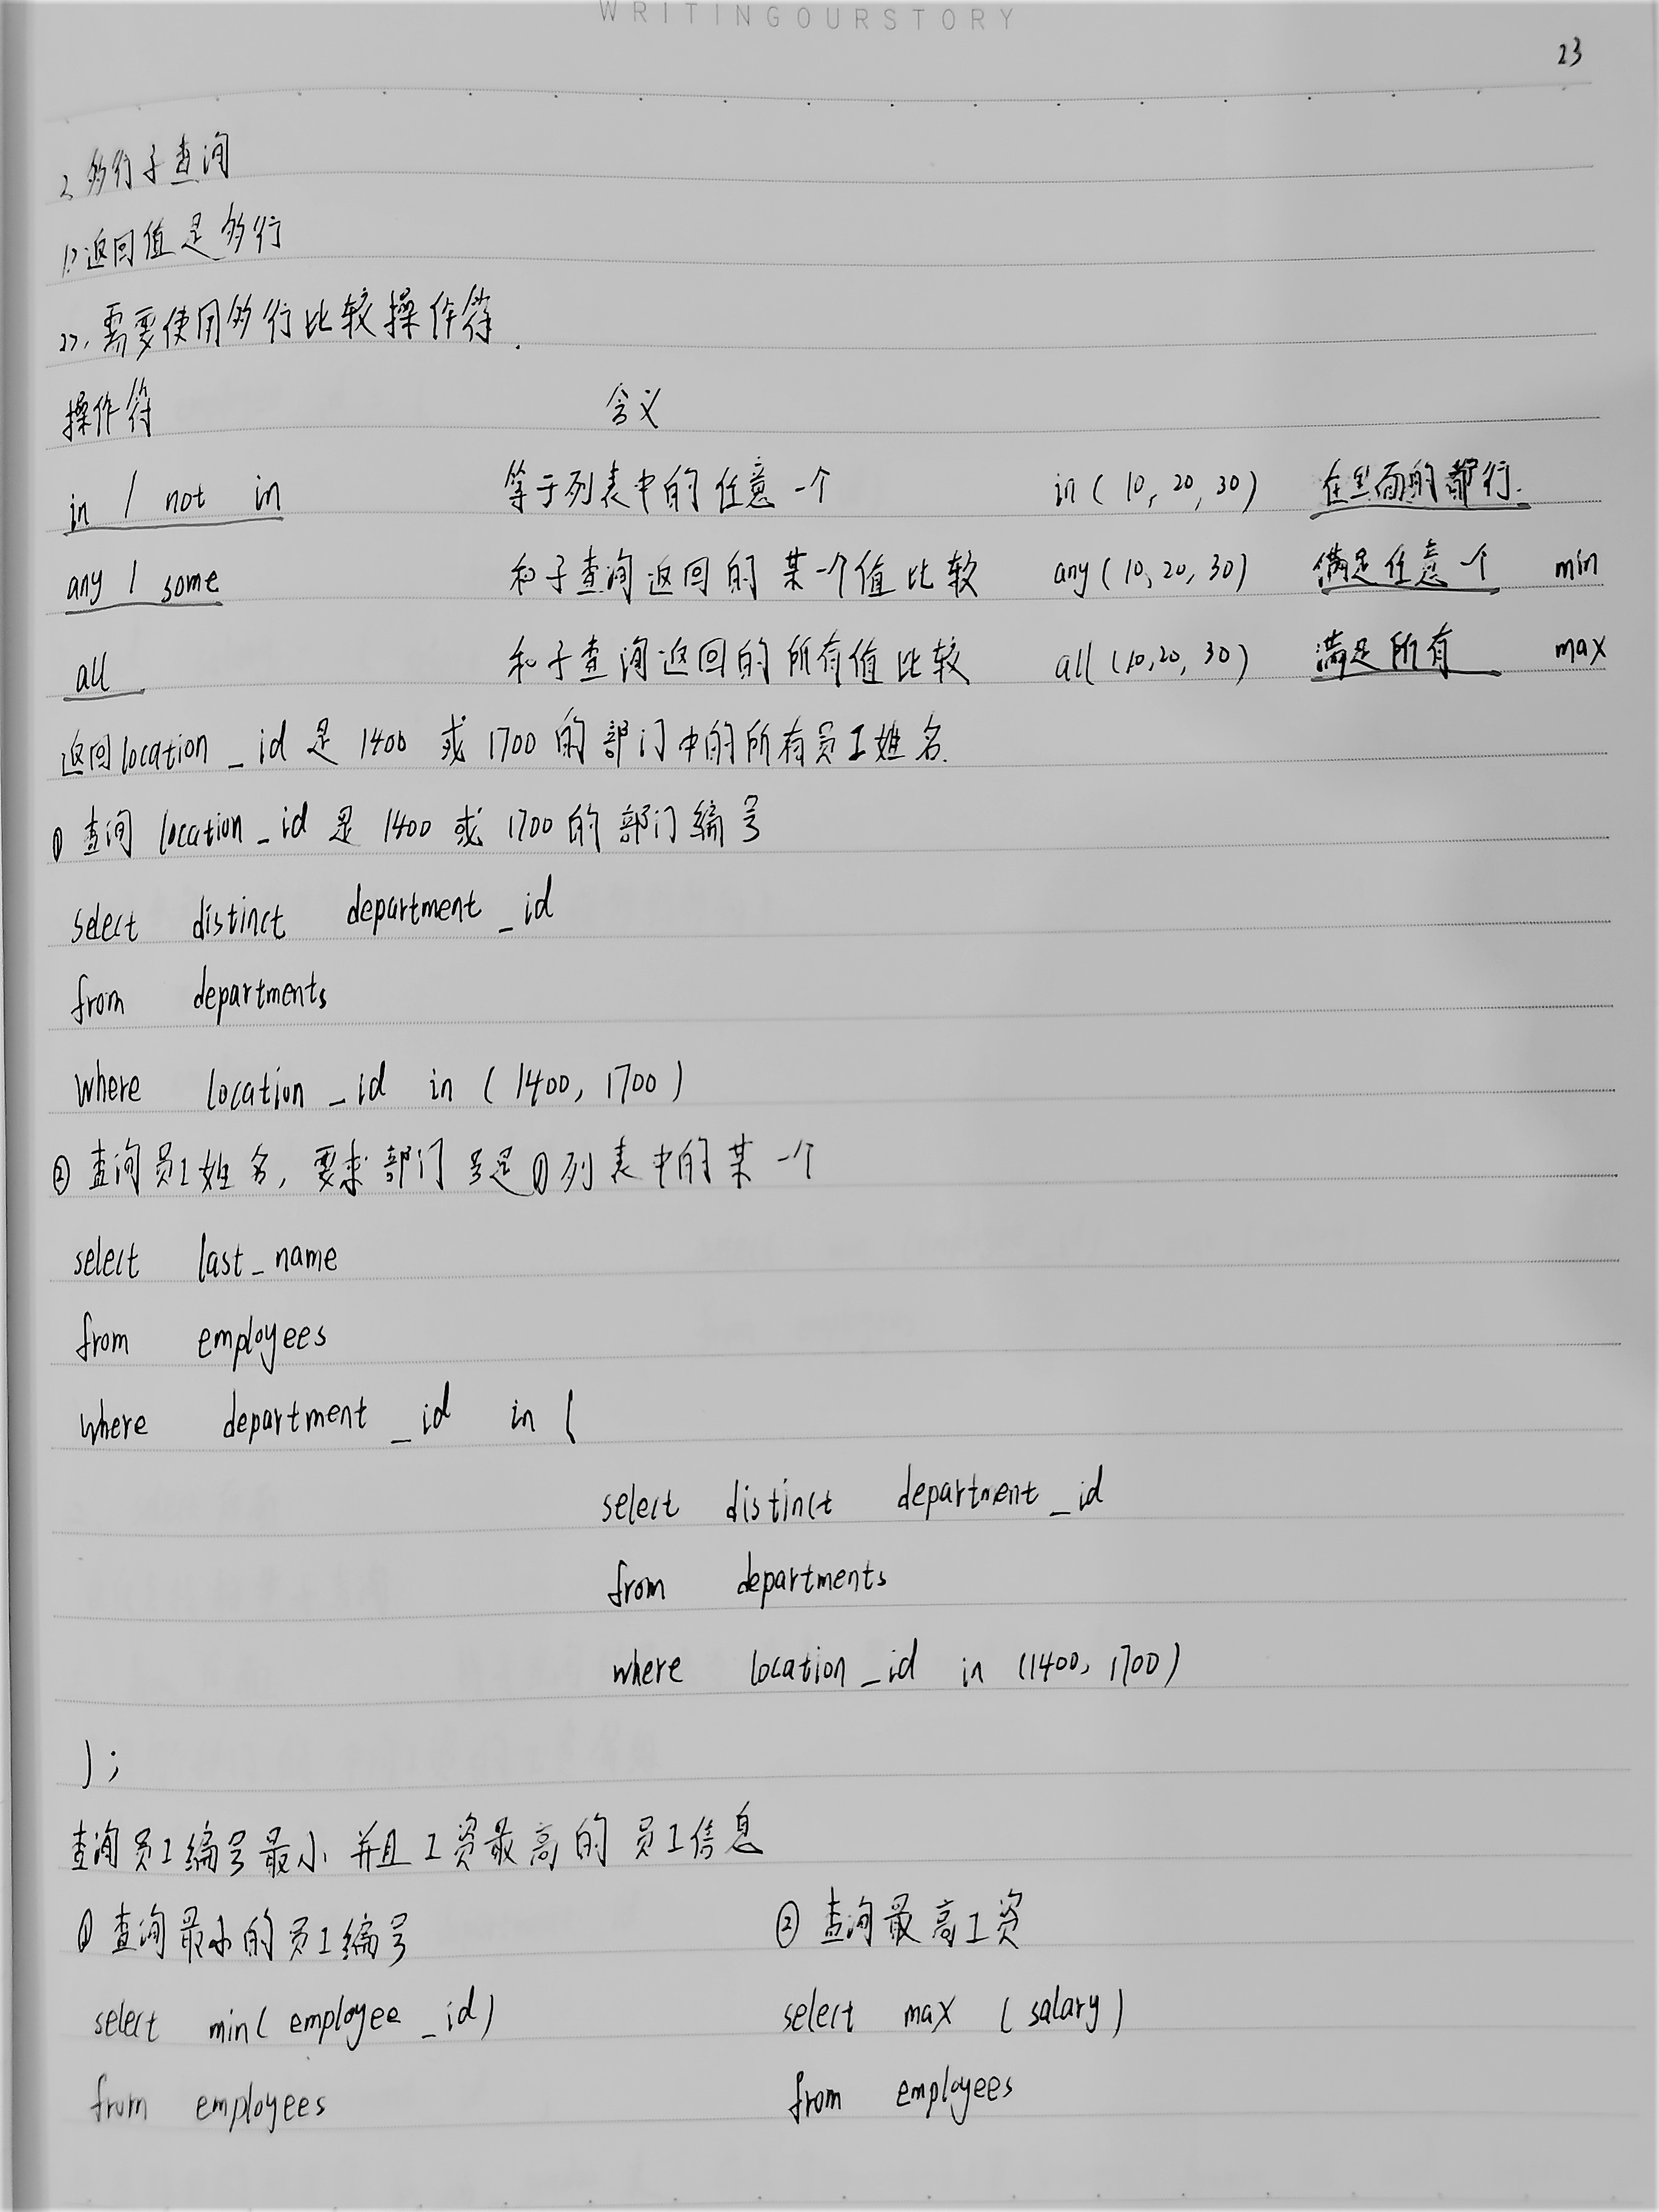 WRITINGOURSTORY
23
2、多行子查询
1>.返回值是多行
2>.需要使用多行比较操作符.
操作符 含义
in / not in 等于列表中的任意一个 in ( 10, 20, 30 ) 在里面的都行.
any / some 和子查询返回的某一个值比较 any ( 10, 20, 30 ) 满足任意一个 min
all 和子查询返回的所有值比较 all (10,20, 30 ) 满足所有 max
返回location _ id 是 1400 或 1700 的部门中的所有员工姓名.
① 查询 location _ id 是 1400 或 1700 的部门编号
select distinct department _ id
from departments
where location _ id in ( 1400, 1700 )
② 查询员工姓名, 要求部门号是①列表中的某一个
select last _ name
from employees
where department _ id in (
select distinct department _ id
from departments
where location _ id in (1400, 1700 )
) ;
查询员工编号最小并且工资最高的员工信息
① 查询最小的员工编号 ② 查询最高工资
select min( employee _ id ) select max ( salary )
from employees from employees